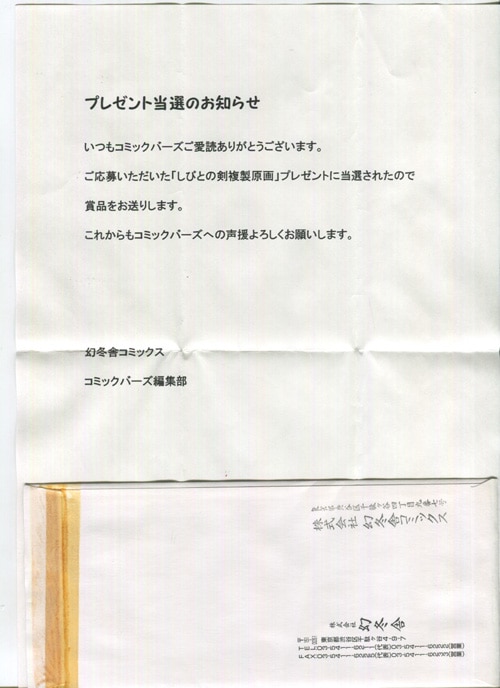 プレゼント当選のお知らせ
いつもコミックバーズご愛読ありがとうございます。
ご応募いただいた「しびとの剣複製原画」プレゼントに当選されたので
賞品をお送りします。
これからもコミックバーズへの声援よろしくお願いします。
幻冬舎コミックス
コミックバーズ編集部
東京都渋谷区千駄ヶ谷四丁目九番七号
株式会社 幻冬舎コミックス
株式会社 幻冬舎
東京都渋谷区千駄ヶ谷4-9-7